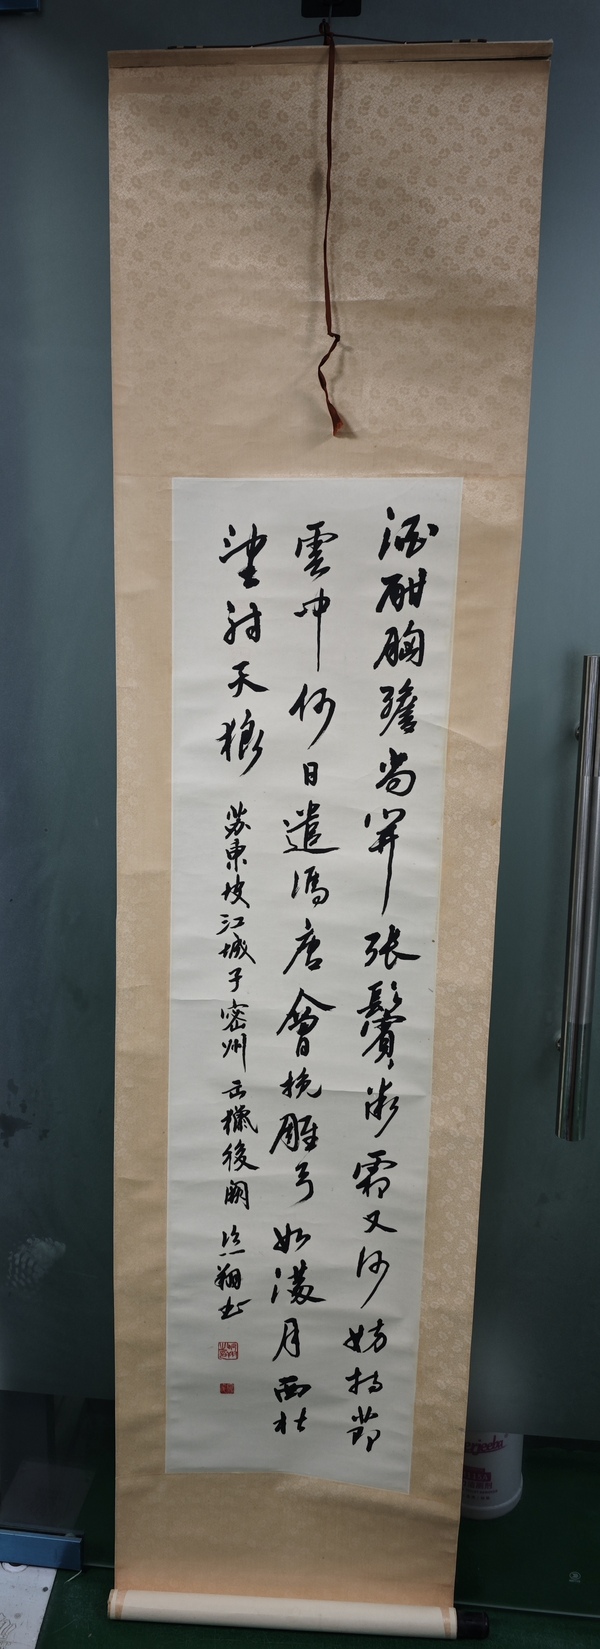 酒酣胸膽尚開張鬢微霜又何妨持節
雲中何日遣馮唐會挽雕弓如滿月西北
望射天狼 苏東坡江城子密州出獵後闋 翔書